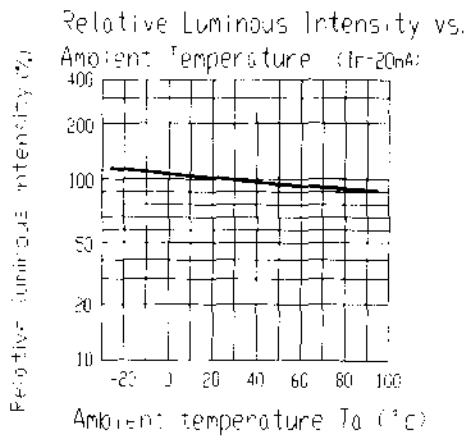 Relative Luminous Intensity vs.
Ambient Temperature (IF=20mA)
Relative luminous intensity (%)
400
200
100
50
20
10
-20 0 20 40 60 80 100
Ambient temperature Ta (°C)